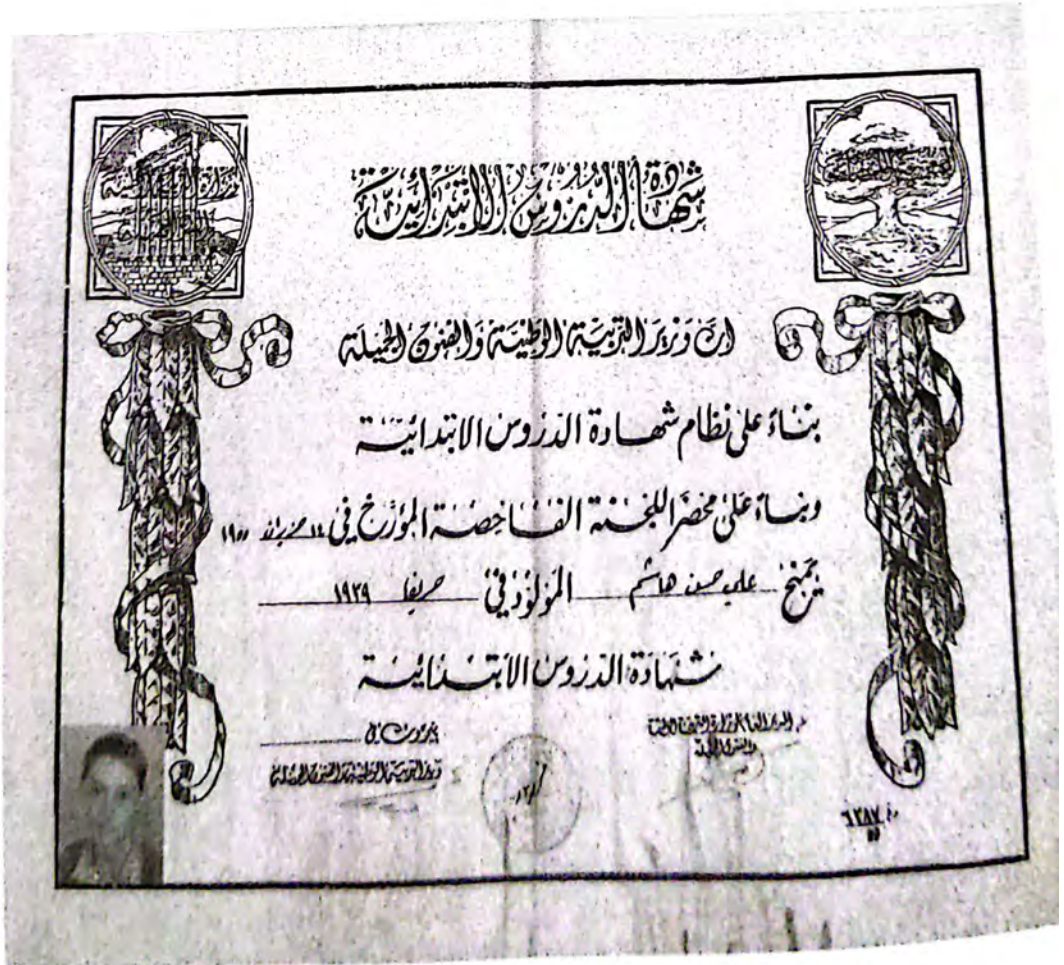 شهادة الدروس الابتدائية
ان وزير التربية الوطنية والفنون الجميلة
بناء على نظام شهادة الدروس الابتدائية
وبناء على محضر اللجنة الفاحصة المؤرخ في حزيران ١٩٥٥
يمنح علي حسن هاشم المولود في ١٩٣٩
شهادة الدروس الابتدائية
بيروت في
وزير التربية الوطنية والفنون الجميلة
والفنون الجميلة